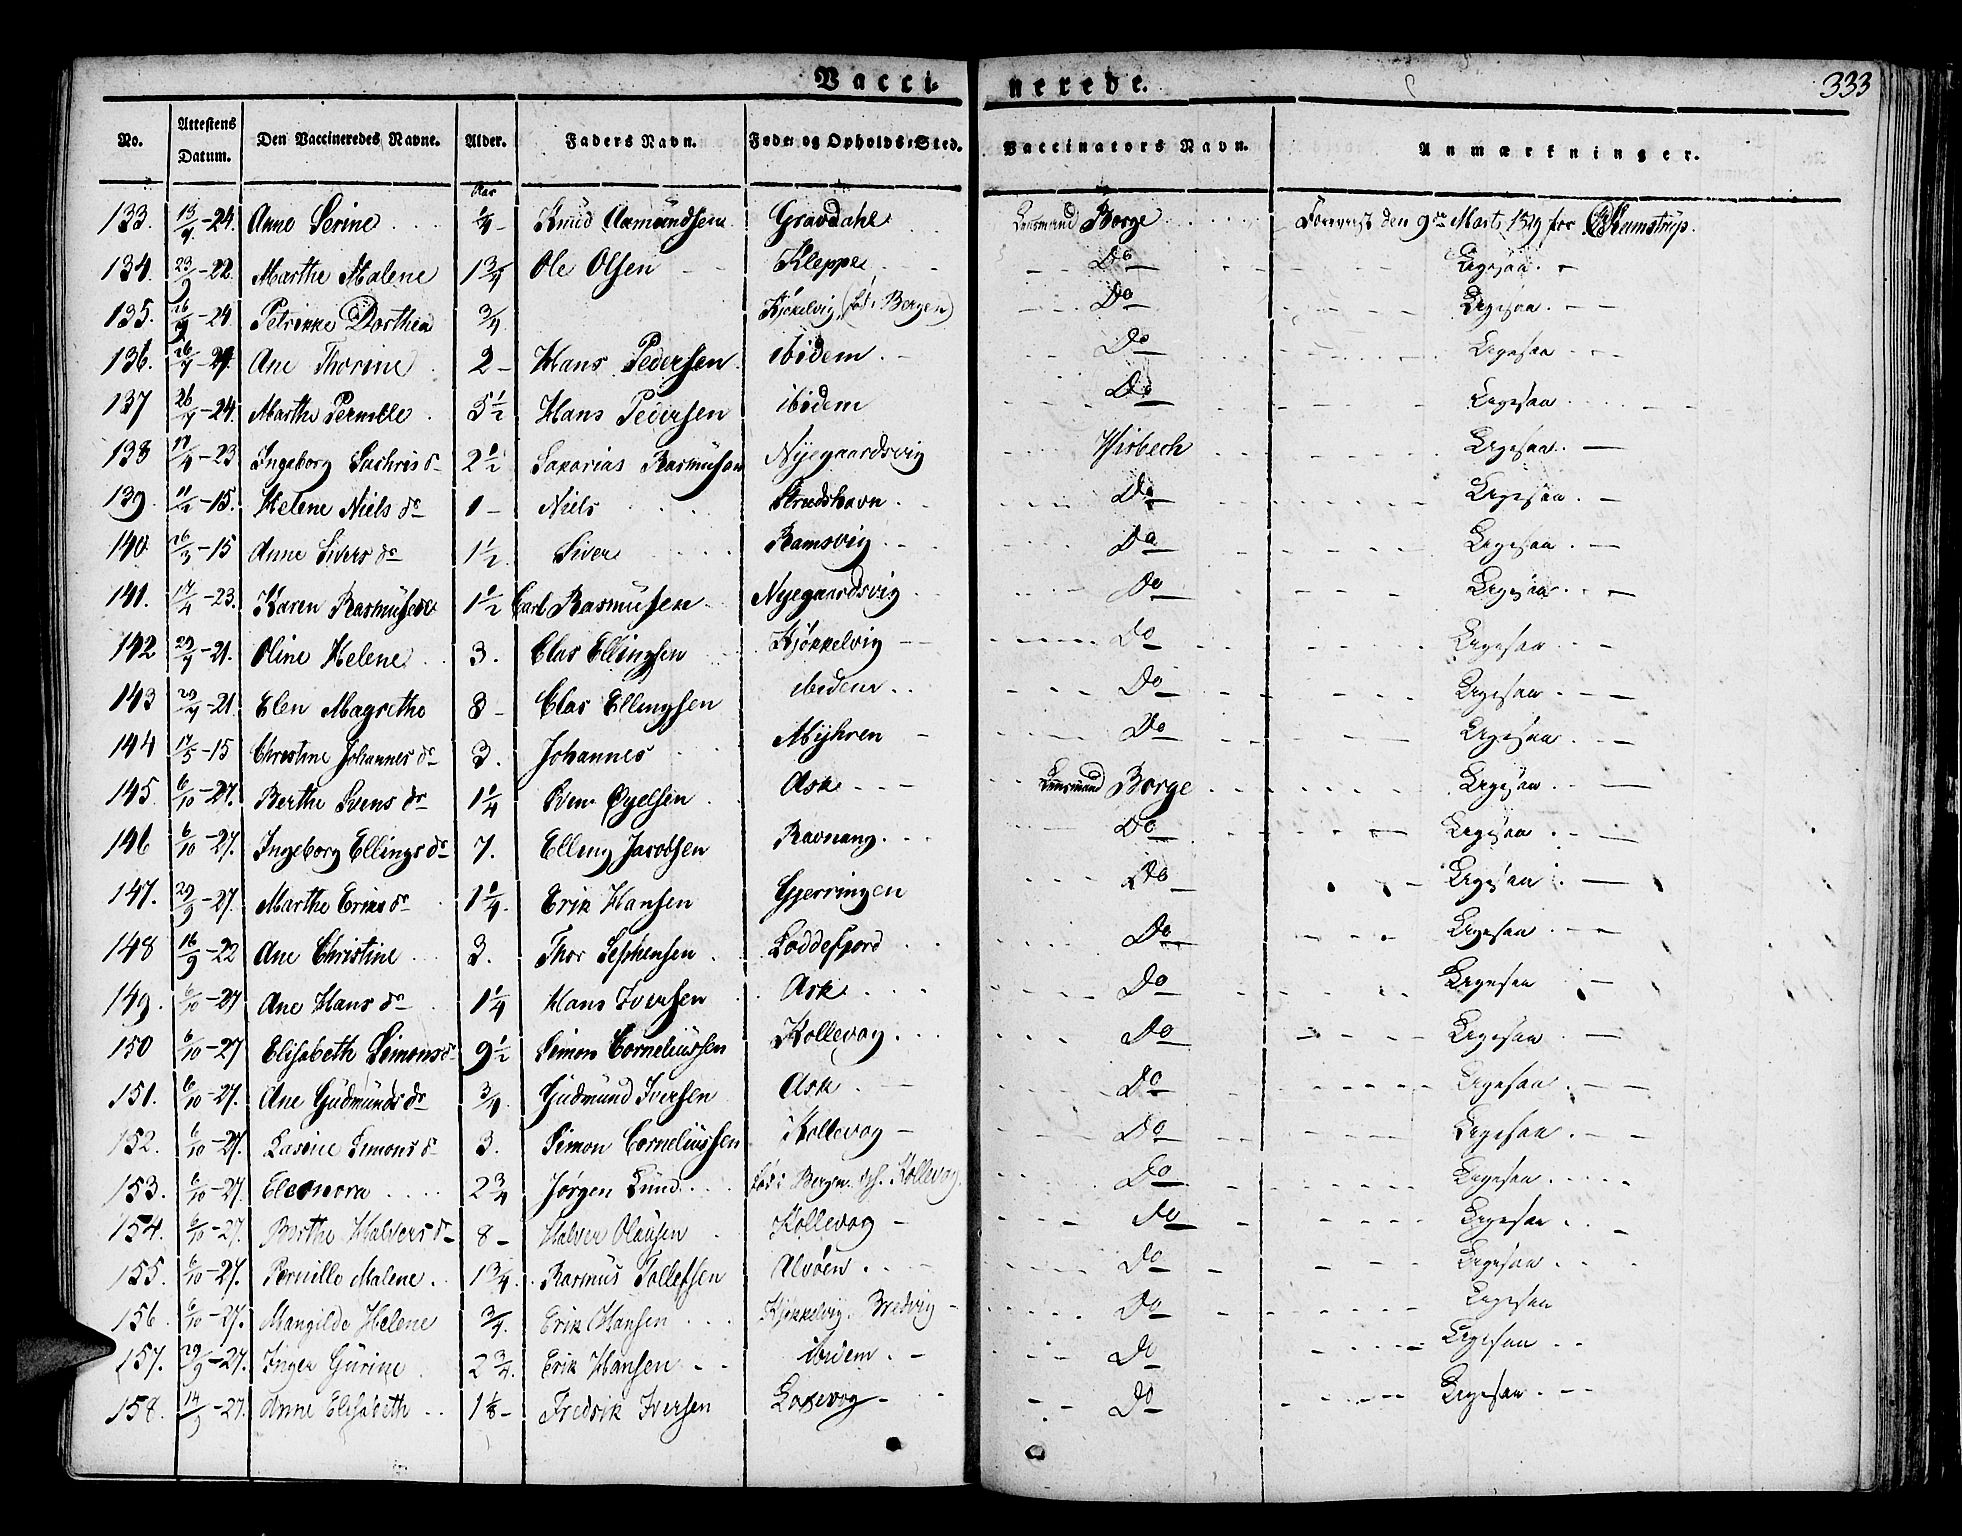 Vaccinerede. 333
No. Attestens Datum. Den Vaccineredes Navne. Alder. Faders Navn. Føde- og Opholds-Sted. Vaccinators Navn. Anmærkninger.
Aar
133. 13/4-24. Anne Serine 1/4- Knud Aamundsen Gravdahl Lensmand Borge Foreviist den 9de Marts 1829 for
134. 23/9-22. Marthe Malene 1 3/4 Ole Olsen Kleppe Do Ligesaa
135. 16/9-24 Petrikke Dorthea 3/4 Kjøkelvig (fød i Bergen) Do Ligesaa
136. 26/4-24. Ane Thorine 2- Hans Pedersen ibidem Do Ligesaa
137 26/4-24. Marthe Pernille 5 1/2 Hans Pedersen ibidem Do Ligesaa
138 17/4-23 Ingeborg Sachrisdr 2 1/2 Saxarias Rasmusen Nyegaardsvig Wisbech Ligesaa
139. 11/2-15. Helene Nielsdr 1- Niels Strudshavn Do Ligesaa
140. 26/3-15 Anne Siversdr 1 1/2. Siver Ramsvig Do Ligesaa
141. 17/4-23. Karen Rasmusen 1 1/2 Carl Rasmusen Nyegaardsvig Do Ligesaa
142 29/4-21. Oline Helene 3. Clas Ellingsen Kjøkkelvig Do Ligesaa
143 29/4-21 Elen Magrethe 8- Clas Ellingsen ibidem Do Ligesaa
144 17/5-15 Christine Johannesdr 3. Johannes Myhren Do Ligesaa
145. 6/10-27. Berthe Svensdr 1 1/4 Sven Øyelsen Ask Lensmand Borge Ligesaa
146 6/10-27. Ingeborg Ellingsdr 7. Elling Jacobsen Ravnang Do Ligesaa
147. 29/9-27. Marthe Eriksdr 1 1/4. Erik Hansen Gjerringen Do Ligesaa
148 16/9-22 Ane Christine 3. Thor Sephensen Loddefjord Do Ligesaa
149. 6/10-27 Ane Hansdr 1 1/4 Hans Iversen Ask Do Ligesaa
150 6/10-27 Elisabeth Simonsdr 9 1/2 Simon Corneliussen Kollevog Do Ligesaa
151. 6/10-27. Ane Gudmundsdr 3/4. Gudmund Iversen Ask Do Ligesaa
152. 6/10-27. Lasine Simonsdr 3. Simon Corneliussen Kollevog Do Ligesaa
153. 6/10-27. Eleonora 2 3/4 Jørgen Lund fød i Bergen. Kollevog. Do Ligesaa
154. 6/10-27. Berthe Halversdr 8- Halver Olausen Kollevog Do Ligesaa
155. 6/10-27. Pernille Malene 1 3/4. Rasmus Tollefsen Alvøen Do Ligesaa
156. 6/10-27. Mangilde Helene 3/4. Erik Hansen Kjøkkelvig. Bredvig Do Ligesaa
157. 29/9-27. Inger Gurine 2 3/4. Erik Hansen ibidem Do Ligesaa
158. 14/9-27. Anne Elisabeth 1 1/8- Fredrik Iversen Laxevog Do Ligesaa